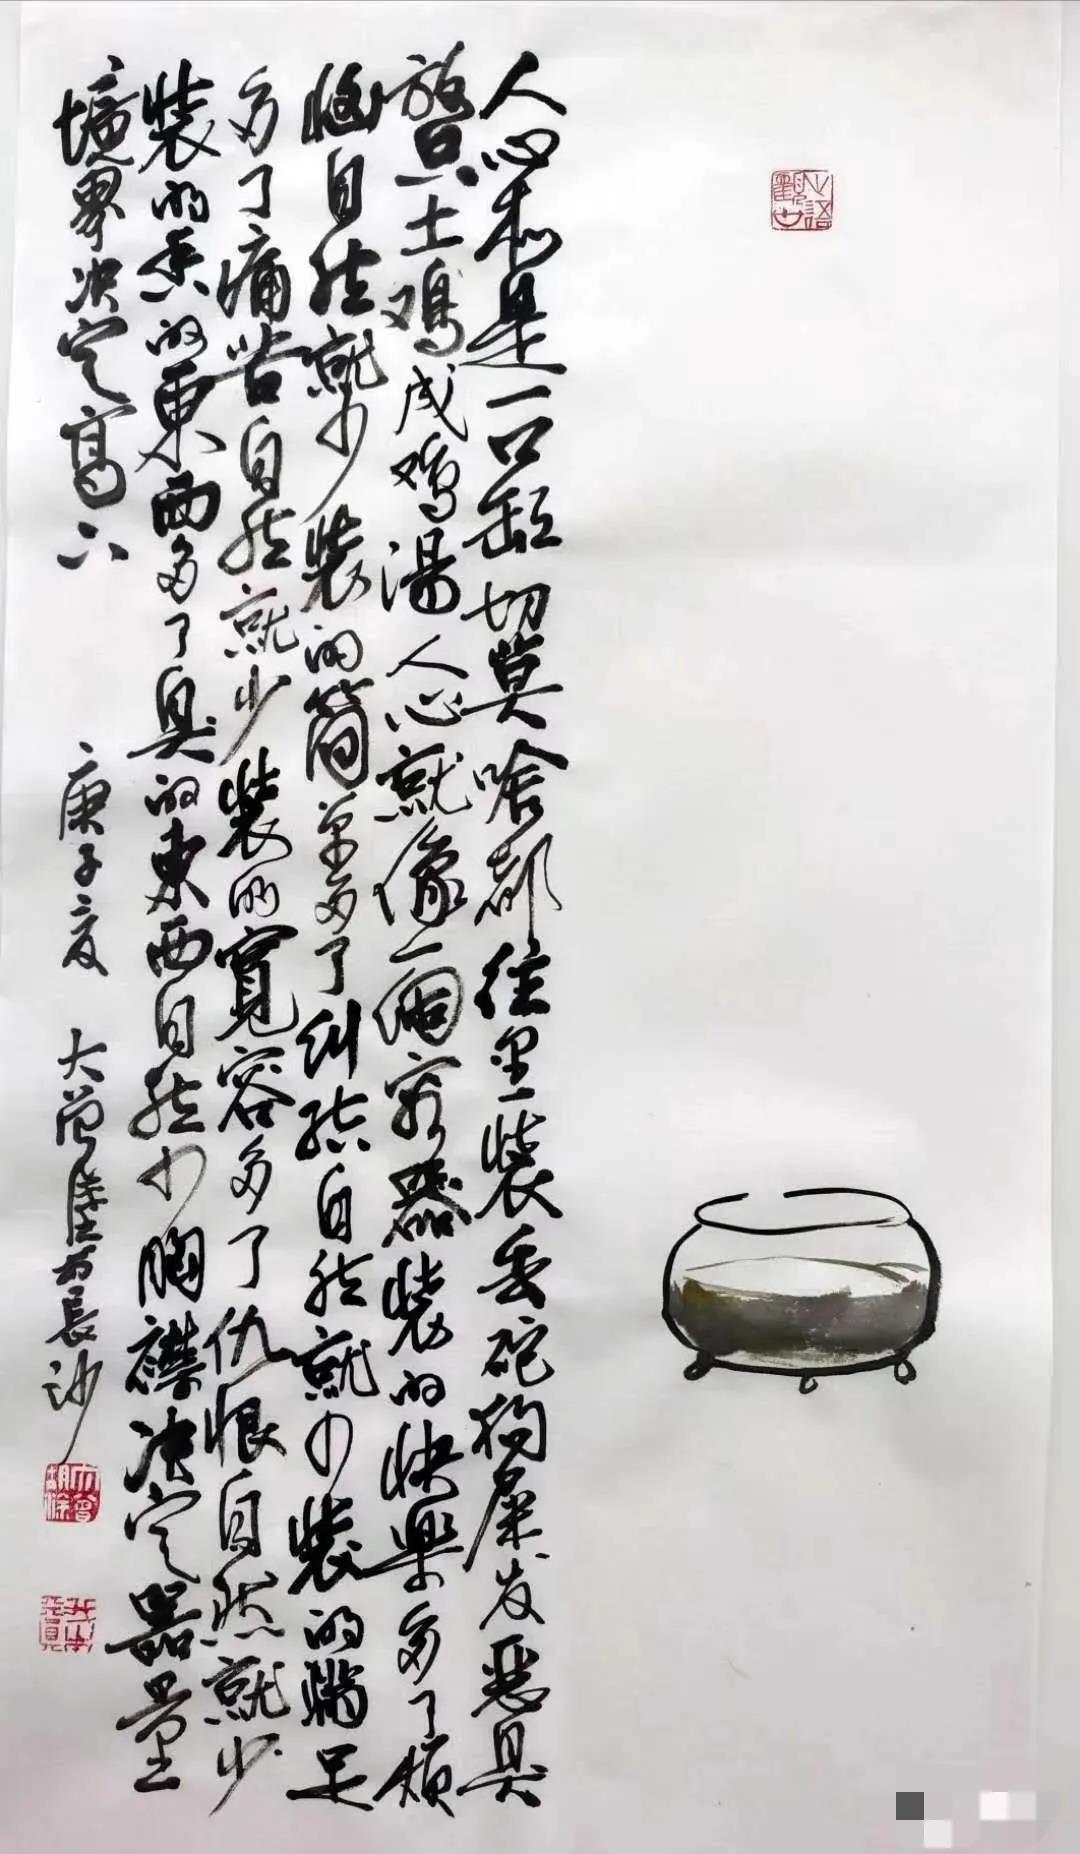 人心本是一口缸切莫啥都往里装丢砣狗屎发恶臭
放只土鸡成鸡汤人心就像一個容器装的快樂多了煩
惱自然就少装的简单多了纠结自然就少装的满足
多了痛苦自然就少装的寬容多了仇恨自然就少
装的香的東西多了臭的東西自然少胸襟决定器量
境界决定高下
庚子夏 大曾 於長沙